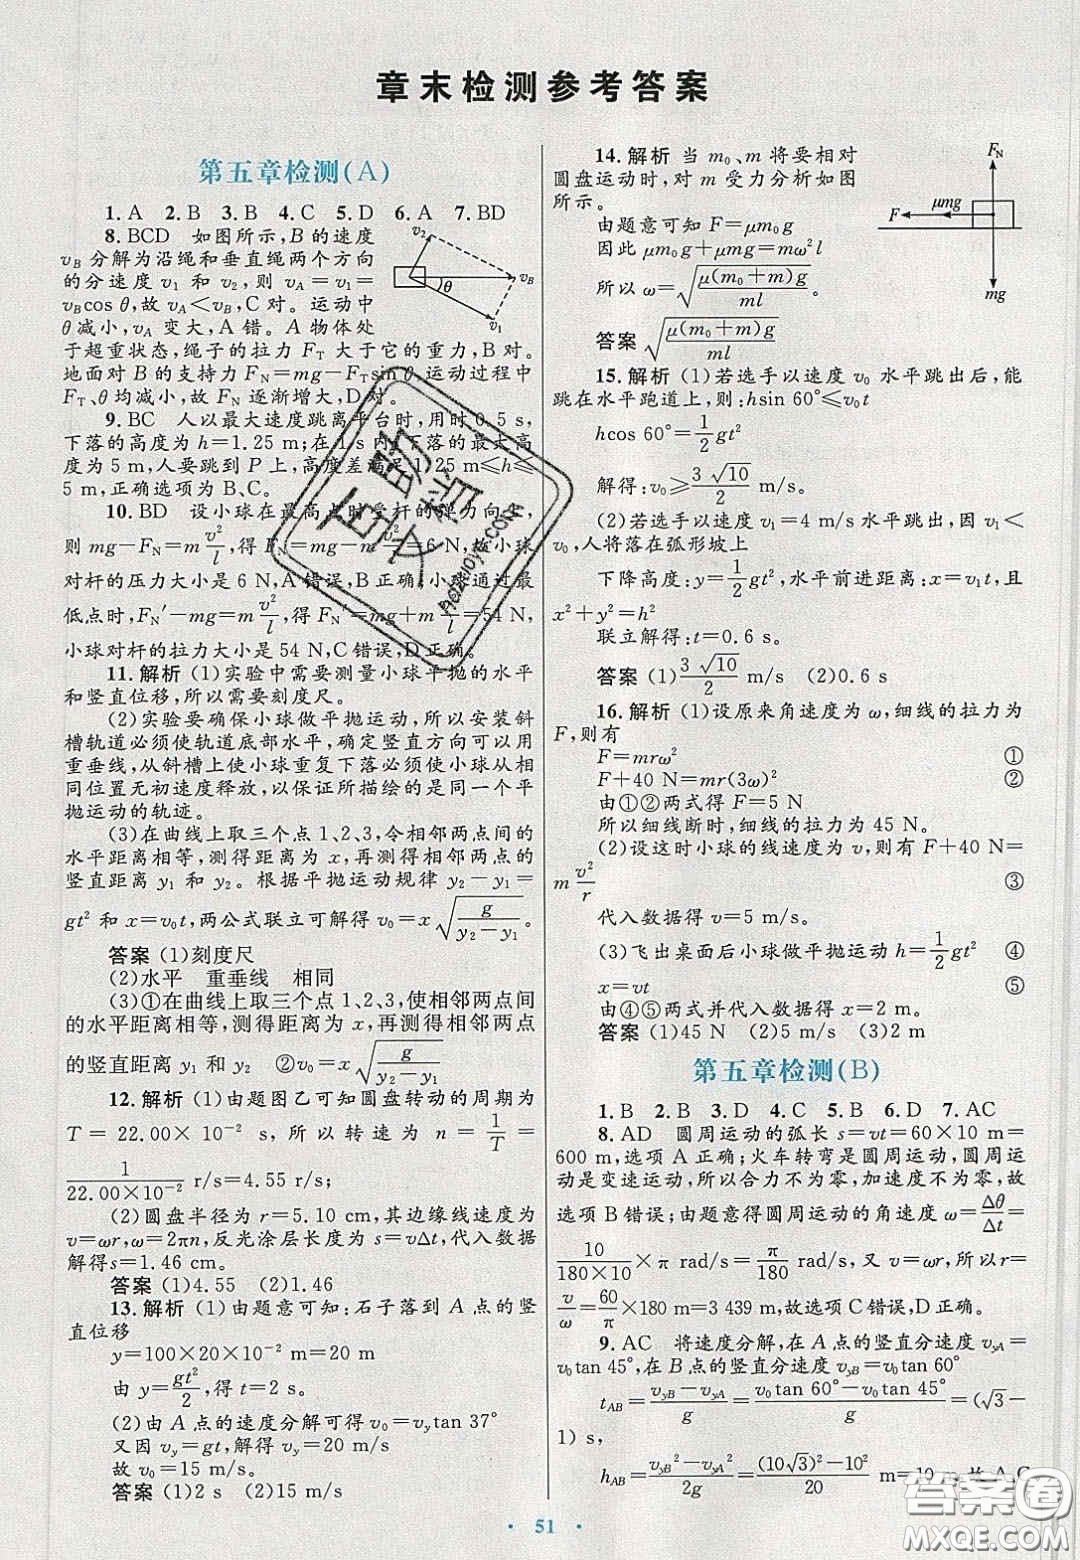 章末检测参考答案
第五章检测(A)
1. A  2. B  3. B  4. C  5. D  6. A  7. BD
8. BCD  如图所示,B 的速度
v_B 分解为沿绳和垂直绳两个方向
的分速度 v₁ 和 v₂,则 v_A=v₁=
v_Bcos θ,故 v_A<v_B,C 对。运动中
θ减小,v_A 变大,A 错。A 物体处
于超重状态,绳子的拉力 F_T 大于它的重力,B 对。
地面对 B 的支持力 F_N=mg-F_Tsin θ,运动过程中
F_T、θ均减小,故 F_N 逐渐增大,D 对。
v₂
v_B
θ
v₁
9. BC  人以最大速度跳离平台时,用时 0.5 s,
下落的高度为 h=1.25 m;在 1 s 内,下落的最大高
度为 5 m,人要跳到 P 上,高度差满足 1.25 m≤h≤
5 m,正确选项为 B、C。
10. BD  设小球在最高点时受杆的弹力向上,
则 mg-F_N=m v²/l,得 F_N=mg-m v²/l=6 N,故小球
对杆的压力大小是 6 N,A 错误,B 正确;小球通过最
低点时,F_N′-mg=m v²/l,得 F_N′=mg+m v²/l=54 N,
小球对杆的拉力大小是 54 N,C 错误,D 正确。
11. 解析 (1)实验中需要测量小球平抛的水平
和竖直位移,所以需要刻度尺。
(2)实验要确保小球做平抛运动,所以安装斜
槽轨道必须使轨道底部水平,确定竖直方向可以用
重垂线,从斜槽上使小球重复下落必须使小球从相
同位置无初速度释放,以保证所描绘的是同一个平
抛运动的轨迹。
(3)在曲线上取三个点 1、2、3,令相邻两点间的
水平距离相等,测得距离为 x,再测得相邻两点间的
竖直距离 y₁ 和 y₂。根据平抛运动规律 y₂-y₁=
gt² 和 x=v₀t,两公式联立可解得 v₀=x√(g/(y₂-y₁))。
答案 (1)刻度尺
(2)水平  重垂线  相同
(3)①在曲线上取三个点 1、2、3,使相邻两点间
的水平距离相等,测得距离为 x,再测得相邻两点间
的竖直距离 y₁ 和 y₂  ②v₀=x√(g/(y₂-y₁))
12. 解析 (1)由题图乙可知圆盘转动的周期为
T=22.00×10⁻² s,所以转速为 n=1/T=
1/(22.00×10⁻²) r/s=4.55 r/s;
(2)圆盘半径为 r=5.10 cm,其边缘线速度为
v=ωr,ω=2πn,反光涂层长度为 s=vΔt,代入数据
解得 s=1.46 cm。
答案 (1)4.55  (2)1.46
13. 解析 (1)由题意可知:石子落到 A 点的竖
直位移
y=100×20×10⁻² m=20 m
由 y=gt²/2,得 t=2 s。
(2)由 A 点的速度分解可得 v₀=v_ytan 37°
又因 v_y=gt,解得 v_y=20 m/s
故 v₀=15 m/s。
答案 (1)2 s  (2)15 m/s
14. 解析 当 m₀、m 将要相对
圆盘运动时,对 m 受力分析如图
所示。
由题意可知 F=μm₀g
因此 μm₀g+μmg=mω²l
所以 ω=√(μ(m₀+m)g/ml)。
答案 √(μ(m₀+m)g/ml)
F_N
F
μmg
mg
15. 解析 (1)若选手以速度 v₀ 水平跳出后,能
跳在水平跑道上,则:hsin 60°≤v₀t
hcos 60°=1/2 gt²
解得:v₀≥3√10/2 m/s。
(2)若选手以速度 v₁=4 m/s 水平跳出,因 v₁<
v₀,人将落在弧形坡上
下降高度:y=1/2 gt²,水平前进距离:x=v₁t,且
x²+y²=h²
联立解得:t=0.6 s。
答案 (1)3√10/2 m/s  (2)0.6 s
16. 解析 (1)设原来角速度为 ω,细线的拉力为
F,则有
F=mrω² ①
F+40 N=mr(3ω)² ②
由①②两式得 F=5 N
所以细线断时,细线的拉力为 45 N。
(2)设这时小球的线速度为 v,则有 F+40 N=
m v²/r ③
代入数据得 v=5 m/s。
(3)飞出桌面后小球做平抛运动 h=1/2 gt² ④
x=vt ⑤
由④⑤两式并代入数据得 x=2 m。
答案 (1)45 N  (2)5 m/s  (3)2 m
第五章检测(B)
1. B  2. B  3. D  4. C  5. B  6. D  7. AC
8. AD  圆周运动的弧长 s=vt=60×10 m=
600 m,选项 A 正确;火车转弯是圆周运动,圆周运动
是变速运动,所以合力不为零,加速度不为零,故
选项 B 错误;由题意得圆周运动的角速度 ω=Δθ/Δt=
10/(180×10)×π rad/s=π/180 rad/s,又 v=ωr,所以 r=
v/ω=60/π×180 m=3 439 m,故选项 C 错误,D 正确。
9. AC  将速度分解,在 A 点的竖直分速度 v_yA=
v₀tan 45°,在 B 点的竖直分速度 v_yB=v₀tan 60°
t_AB=(v_yB-v_yA)/g=(v₀tan 60°-v₀tan 45°)/g=(√3-
1) s,
h_AB=(v_yB²-v_yA²)/2g=((10√3)²-10²)/20 m=10 m,故 A、C
· 51 ·
百助文档
Hdzhuoye.com
答案圈
MXQE.COM